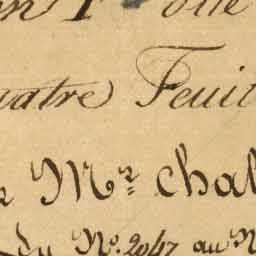 uatre Feuil
Mr. Chal
du No. 2047 au N